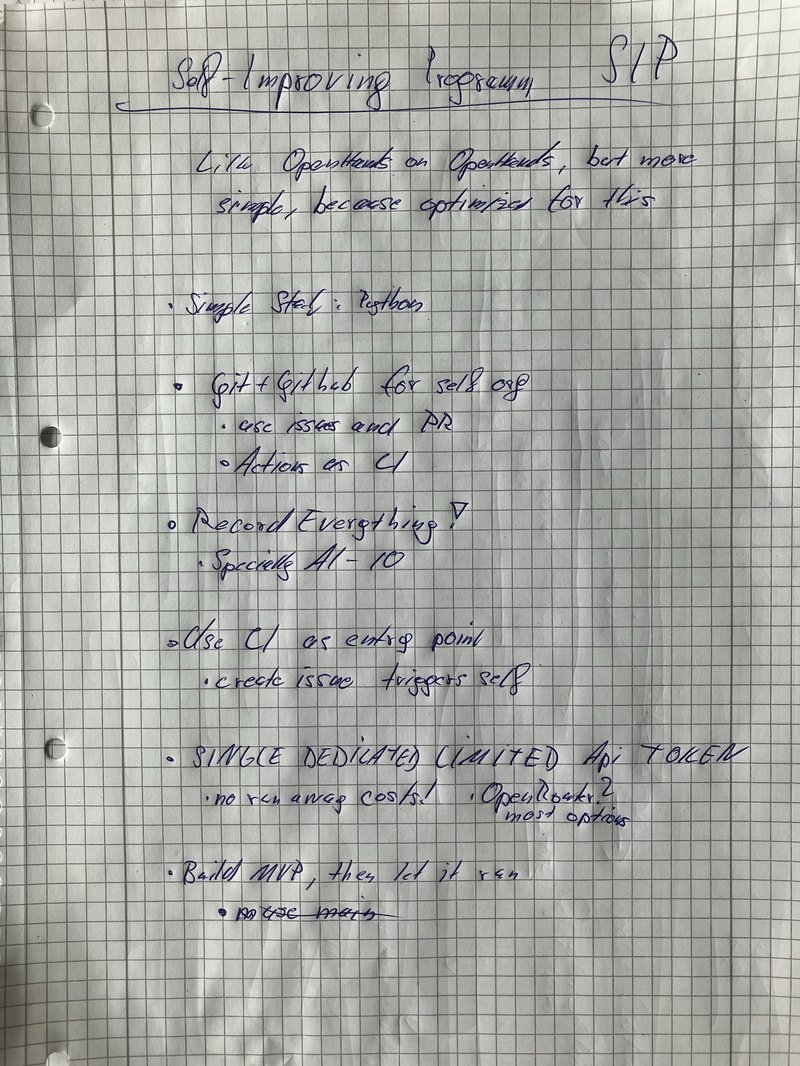 Self-Improving Programm SIP
Like OpenHands on OpenHands, but more
simple, because optimized for this
• Simple Stack: Python
• Git + Github for self org
• use issues and PR
• Actions as CI
• Record Everything!
• Specially AI-IO
• Use CI as entry point
• create issue triggers self
• SINGLE DEDICATED LIMITED Api TOKEN
• no run away costs! • OpenRouter?
most options
• Build MVP, then let it run